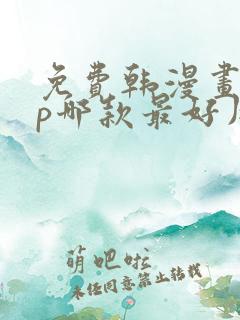 免費韩漫畫
p哪款最好用
萌吧啦
未经同意禁止转载